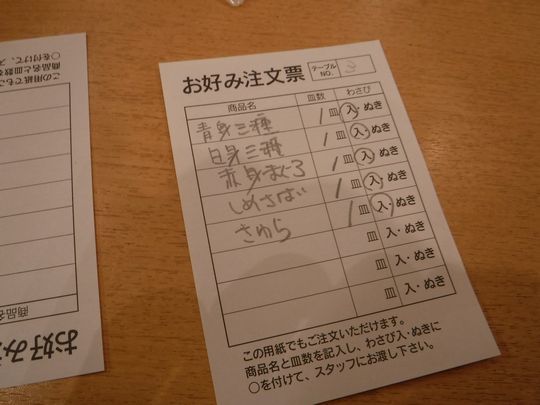 お好み注文票
テーブルNO. 3
商品名 皿数 わさび
青身三種 1皿 入・ぬき
白身三種 1皿 入・ぬき
赤身まぐろ 1皿 入・ぬき
しめさば 1皿 入・ぬき
さわら 1皿 入・ぬき
皿 入・ぬき
皿 入・ぬき
皿 入・ぬき
この用紙でもご注文いただけます。
商品名と皿数を記入し、わさび入・ぬきに
○を付けて、スタッフにお渡し下さい。
お好み
商品名
この用紙でもご
商品名と皿数を
○を付けて、ス